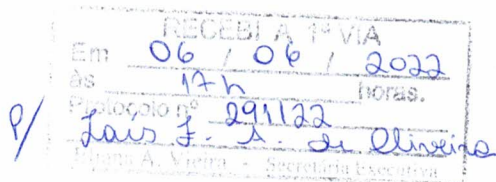 RECEBI A 1ª VIA
Em 06 / 06 / 2022
às 17h horas.
Protocolo nº 291122
P/ Laís F. A. de Oliveira
Eliana A. Vieira - Secretária Executiva